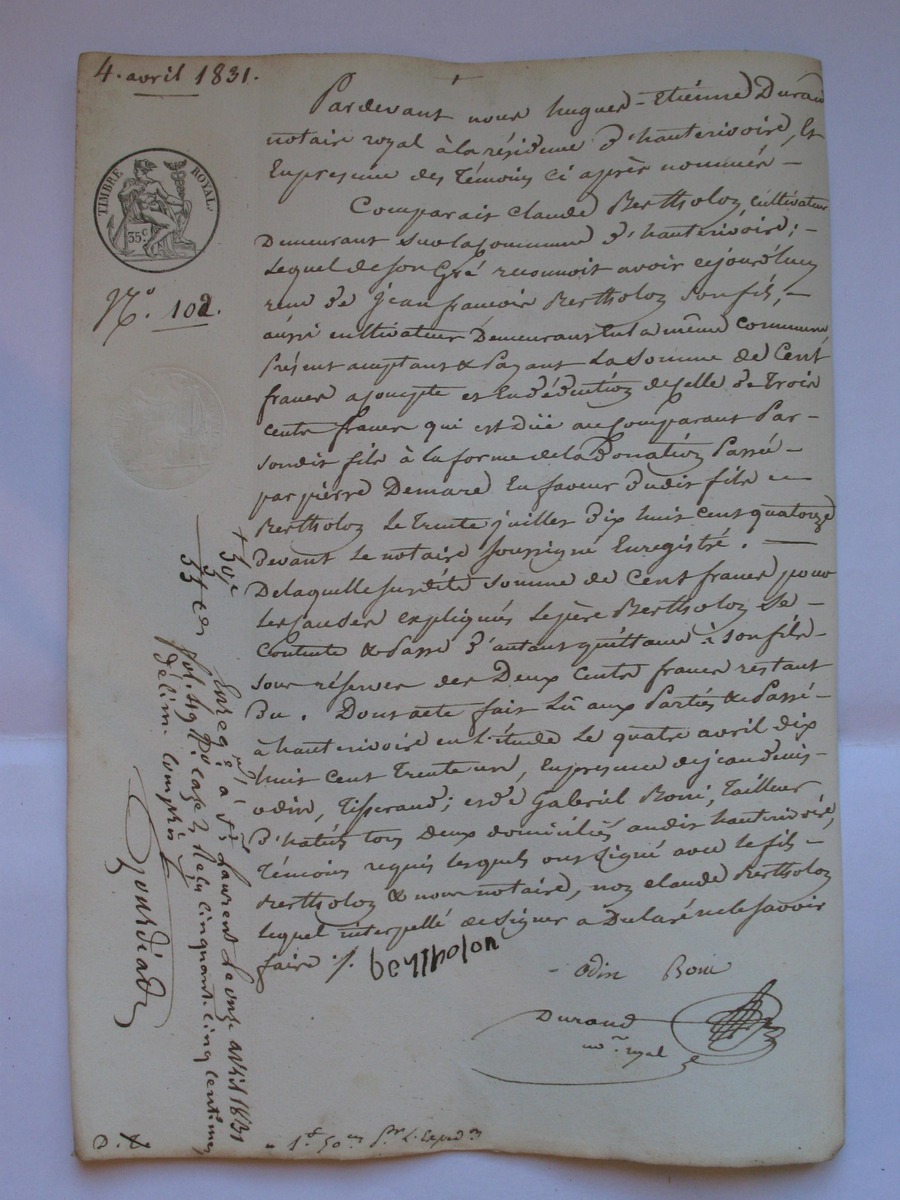 4. avril 1831.
TIMBRE ROYAL
35 c.
N.o 102.
Pardevant nous hugues-Etiénne Durand
notaire royal à la résidence d'hauterivoire, Et
En presence des Témoins Ci après nommés -
Comparait Claude Bertholon, cultivateur
Demeurant sur la Commune d'hauterivoire; -
Lequel de son Gré reconnoit avoir cejourd'huy
recu de jean francois Bertholon son fils, -
aussi cultivateur Demeurant En la même commune
Présent comptant & Payant La Somme de Cent
francs acompte et En déduction de celle de Trois
cents francs qui est düe au Comparant Par -
sondit fils à la forme de la Donation Passée -
par pierre Demare En faveur dudit fils
Bertholon Le Trente juillet dix huit cent quatorze
devant Le notaire soussigné Enregistré. -
De laquelle susdite somme de Cent francs pour
les causes expliquées Lepère Bertholon Se -
Contente & Passe d'autant quittance à son fils -
sous réserves des Deux Cents francs restant
Du. Dont acte fait Lû aux Parties & Passé -
à hauterivoire en L'étude Le quatre avril dix
huit Cent Trente un, En presence de jean denis
odin, Tisserand; et de Gabriel Boni, Tailleur
d'habits tous Deux domiciliés audit hauterivoire,
Témoins requis lesquels ont signé avec le fils -
Bertholon & nous notaire, non claude Bertholon
lequel interpellé de signer a Déclaré ne le savoir
faire ./.
berthoion
Odin Boni
Durand
no.re royal
Enreg.é à S.t Laurent Le onze avril 1831
fol. 119 V.o case 2, Reçu cinquante cinq centimes
décime compris
Gourdiat
1.f 50.c p.r L. Exped.on